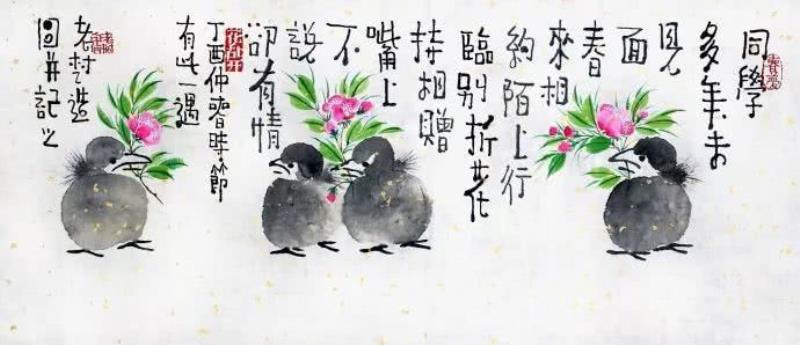 同學
多年未
見
面
春
來相
約陌上行
臨別折花
持相贈
嘴上
不
説
卻有情
丁酉仲春時節
有此一遇
老村造
圖并記之